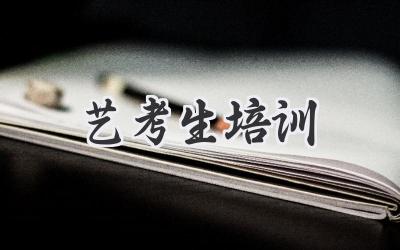 艺考生培训